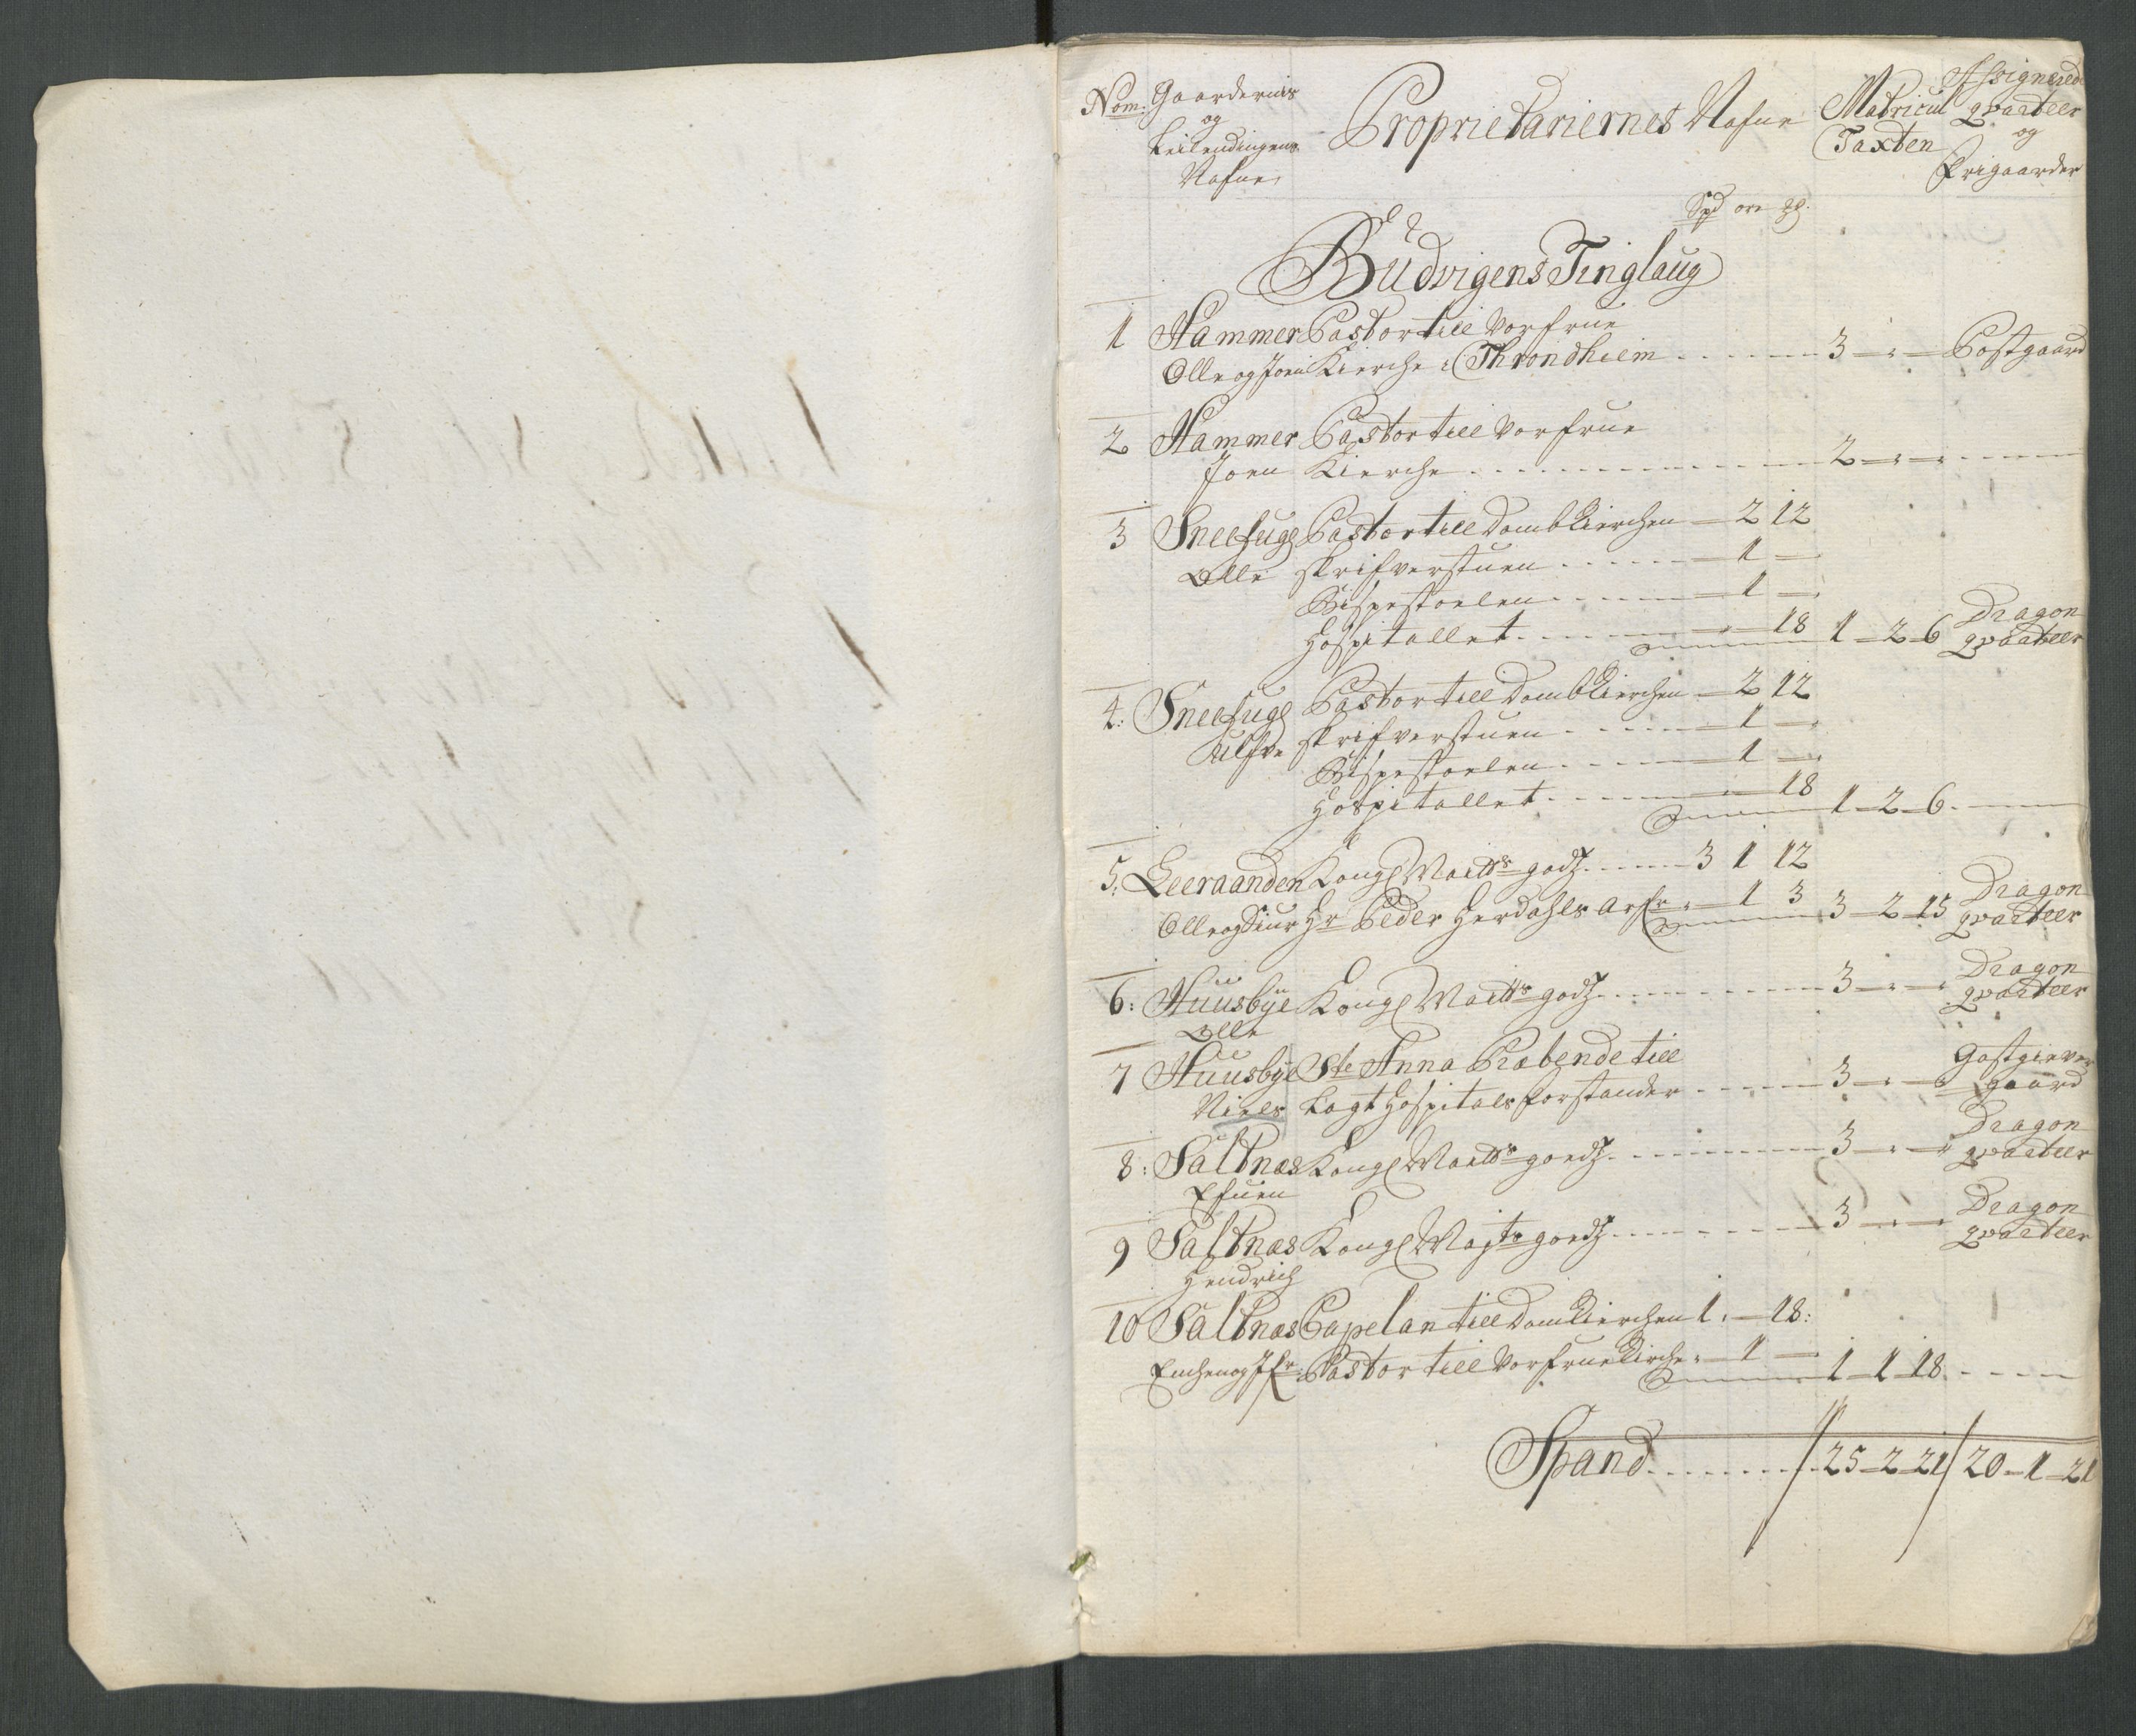 Nom: Gaardernis og Leilendingens Nafne Proprietariernes Nafne Matricul Taxten Assignerede qvarteer og Frigaarder
Spd ore
Büdvigens Tinglaug
1 Hammer Pastor till Vorfrue
Olle og Joen Kierche i Throndhiem 3 - - Postgaard
2 Hammer Pastor till Vorfrue
Joen Kierche 2 - -
3 Sneefugl Pastor till Dombkierchen 2 12
Olle skrifverstuen 1 -
Bispestoelen 1 -
Hospitallet 18 1 - 2 - 6 Dragon qvarteer
4: Sneefugl Pastor till Dombkierchen 2 12
skrifverstuen 1 -
Bispestoelen 1 -
Hospitallet 18
1 - 2 - 6
5: Leeraanden Kongl Maits godz 3 1 12
Olle og Siur Hr Peder Herdahls Arf: 1 3 3 - 2 - 15 Dragon qvarteer
6: Huusbÿe Kongl Maits godz 3 - - Dragon qvarteer
Olle
7 Huusbÿe Ste Anna Præbende till
Niels Lagt Hospitals forstander 3 - - Gastgiever gaard
8: Saltnæs Kongl Maits goedz 3 - - Dragon qvarteer
Efuen
9 Saltnæs Kongl Mayts goedz 3 - - Dragon qvarteer
Hendrich
10 Saltnæs Capelan till Domkierchen 1. - 18:
Pastor till Vorfruekirche 1 - 1 1 18
Spand 25 - 2 - 21 20 - 1 - 21